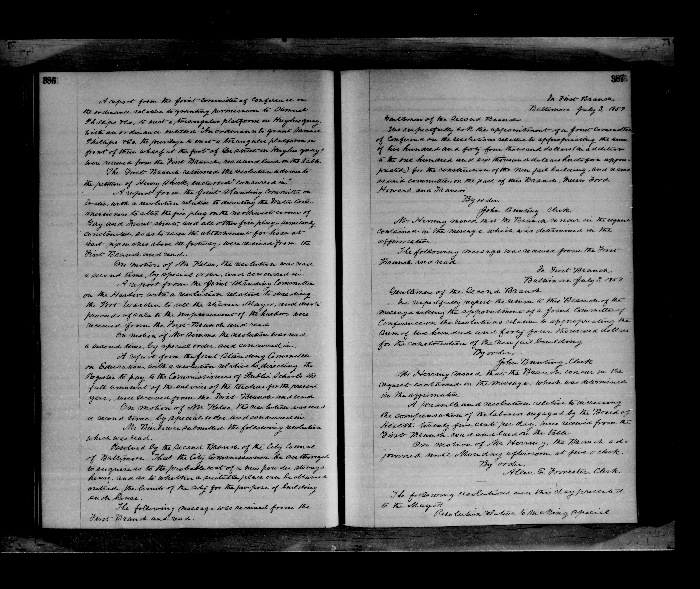 386
A report from the Joint Committee of Conference on
the ordinance relative to granting permission to
Phillips & Co, to erect a triangular platform on Hughes quay,
with an ordinance entitled An ordinance to grant
Phillips & Co the privilege to erect a triangular platform in
front of their wharf at the foot of on Hughes quay
were received from the First Branch, read and laid on the table.
The First Branch returned the resolution adverse to
the petition of Henry endorsed "concurred in"
A report from the Joint Standing Committee on
with a resolution relative to directing the Water
to alter the fire plug on the northwest corner of
Gay and Front streets, and all other fire plugs similarly
constructed so as to raise the attachment for hose at
least inches above the footway, were received from the
First Branch and read.
On motion of Mr the resolution was read
a second time, by special order, and concurred in.
A report from the Joint Standing Committee
on the Harbor with a resolution relative to directing
the Port Warden to sell the and the
proceeds of sale to the improvement of the harbor were
received from the First Branch and read
On motion of Mr the resolution was read
a second time, by special order, and concurred in.
A report from the Joint Standing Committee
on Education, with a resolution relative to directing the
Register to pay to the Commissioners of Public Schools the
full amount of the for the present
year, were received from the First Branch and read.
On motion of Mr the resolution was read
a second time by special order and concurred in
Mr submitted the following resolution
which was read.
Resolved by the Second Branch of the City Council
of Baltimore, That the City Commissioner be authorized
to enquire as to the probable cost of a new powder storage
house, and as to whether a suitable place can be obtained
outside the limits of the city for the purpose of building
such house.
The following message was received from the
First Branch and read.
387
In First Branch
Baltimore July 2, 1857
Gentlemen of the Second Branch
We respectfully ask the appointment of a Joint Committee
of Conference on the resolution relative to appropriating the sum
of two hundred and forty four thousand dollars (in addition
to the one hundred and six thousand dollars heretofore appro-
priated) for the construction of the new jail building, and have
as such committee on the part of this Branch, Messrs Ford
Howard and
By order
John Bunting, Clerk
Mr Herring moved that the Branch concur in the request
contained in the message, which was determined in the
affirmative
The following message was received from the First
Branch and read.
In First Branch
Baltimore July 2, 1857
Gentlemen of the Second Branch
We respectfully request the return to this Branch of the
message asking the appointment of a Joint Committee of
Conference on the resolution relative to appropriating the
sum of two hundred and forty four thousand dollars
for the construction of the new jail building
By order,
John Bunting, Clerk
Mr Herring moved, that the Branch concur in the
request contained in the message, which was determined
in the affirmative
A preamble and resolution relative to increasing
the compensation of the laborers engaged by the Board of
Health twenty five cents per day, were received from the
First Branch, read and laid on the table.
On motion of Mr Herring, the Branch ad-
journed until Thursday afternoon at five o clock.
By order,
Allen E. Forrester Clerk.
The following resolutions were this day presented
to the Mayor
Resolution relative to making special